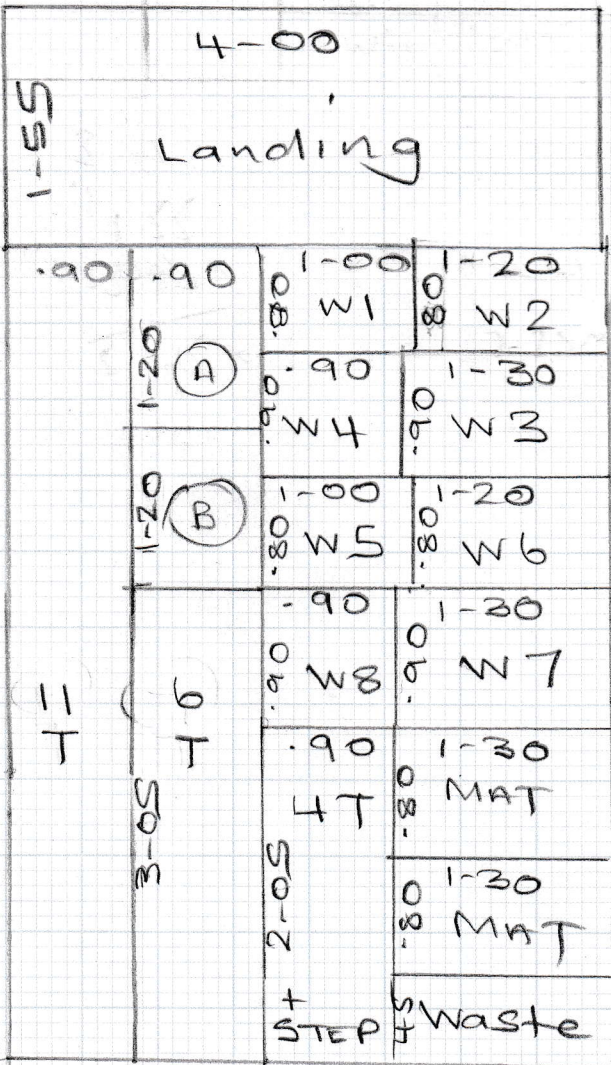 4-00
1-55
Landing
.90
.90
1-20
A
1-20
B
11
T
6
T
3-05
1-00
.80
W1
1-20
.80
W2
.90
.90
W4
1-30
.90
W3
1-00
.80
W5
1-20
.80
W6
.90
.90
W8
1-30
.90
W7
.90
4T
2-05
+
STEP
1-30
.80
MAT
1-30
.80
MAT
45
Waste